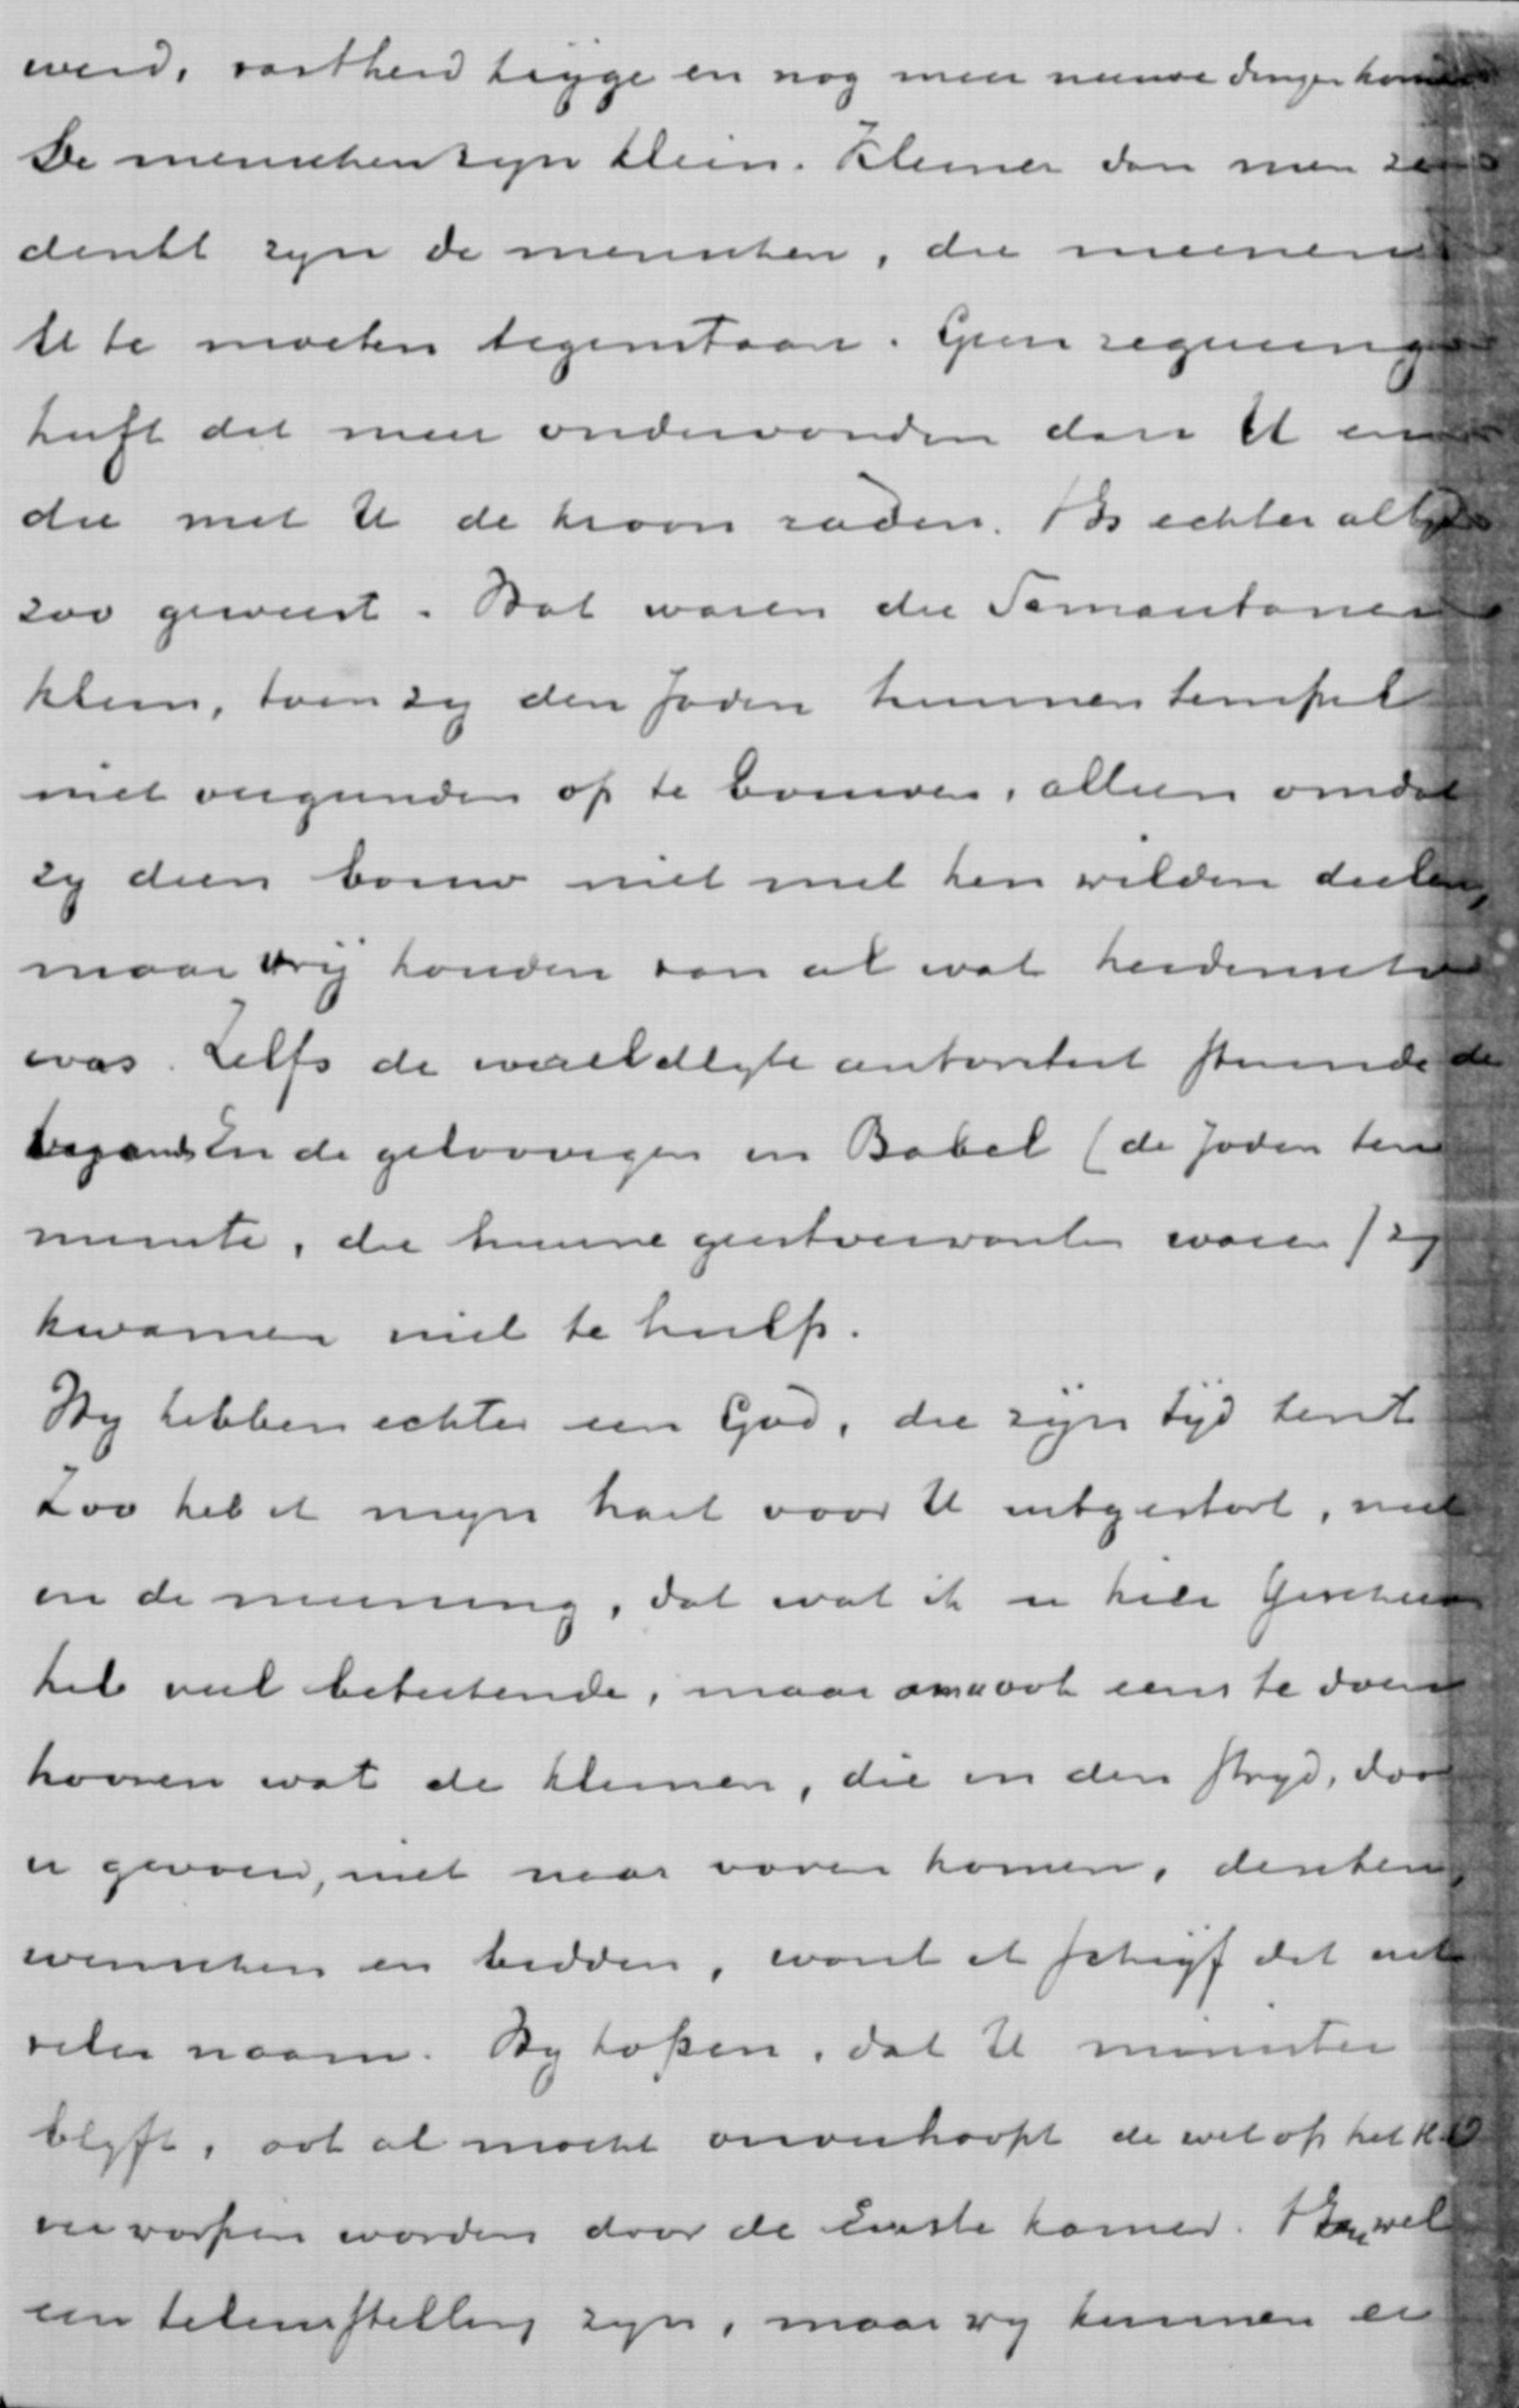 werd, vastheid krijge en nog meer nieuwe dingen komen
De menschen zyn klein. Kleiner dan men
denkt zyn de menschen, die meenen
U te moeten tegenstaan. Geen regeering
heeft dit meer ondervonden dan U en
die met U de kroon raden. 't Is echter altyd
zoo geweest. Wat waren die Samaritanen
klein, toen zy den Joden hunnen tempel
niet vergunden op te bouwen, alleen omdat
zy dien bouw niet met hen wilden deelen,
maar vrij houden van al wat heidensch
was. Zelfs de wereldlyke autoriteit steunde de
En de geloovigen in Babel (de Joden ten
minste, die hunne geestverwanten waren) zy
kwamen niet te hulp.
Wy hebben echter een God, die zijn tijd kent
Zoo heb ik myn hart voor U uitgestort, niet
in de meening, dat wat ik u hier geschreven
heb veel beteekende, maar om u ook eens te doen
hooren wat de kleinen, die in den stryd, door
u gevoerd, niet naar voren komen, denken,
wenschen en bidden, want ik schrijf dit uit
veler naam. Wy hopen, dat U minister
blyft, ook al mocht onverhoopt de wet op het H.O
verworpen worden door de Eerste Kamer. 't Zou wel
een teleurstelling zyn, maar wy kunnen er